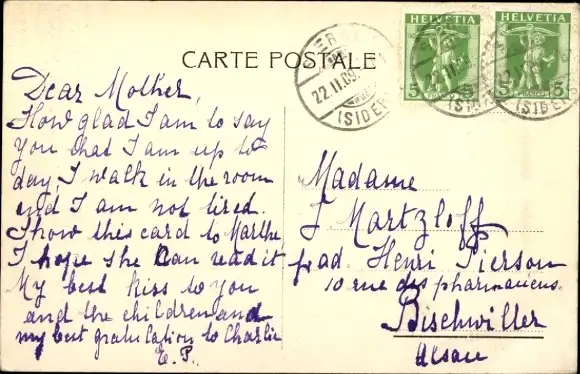 CARTE POSTALE
HELVETIA
HELVETIA
5
5
5
22.II.09
(SIDER
(SIDER
Dear Mother,
How glad I am to say
you that I am up to
day, I walk in the room
and I am not tired.
Show this card to Marthe,
I hope she can read it
My best kiss to you
and the children and
my best gratulation to Charlie
E. P.
Madame
J Martzloff
p ad. Henri Pierson
10 rue des pharmaciens
Bischwiller
Alsace